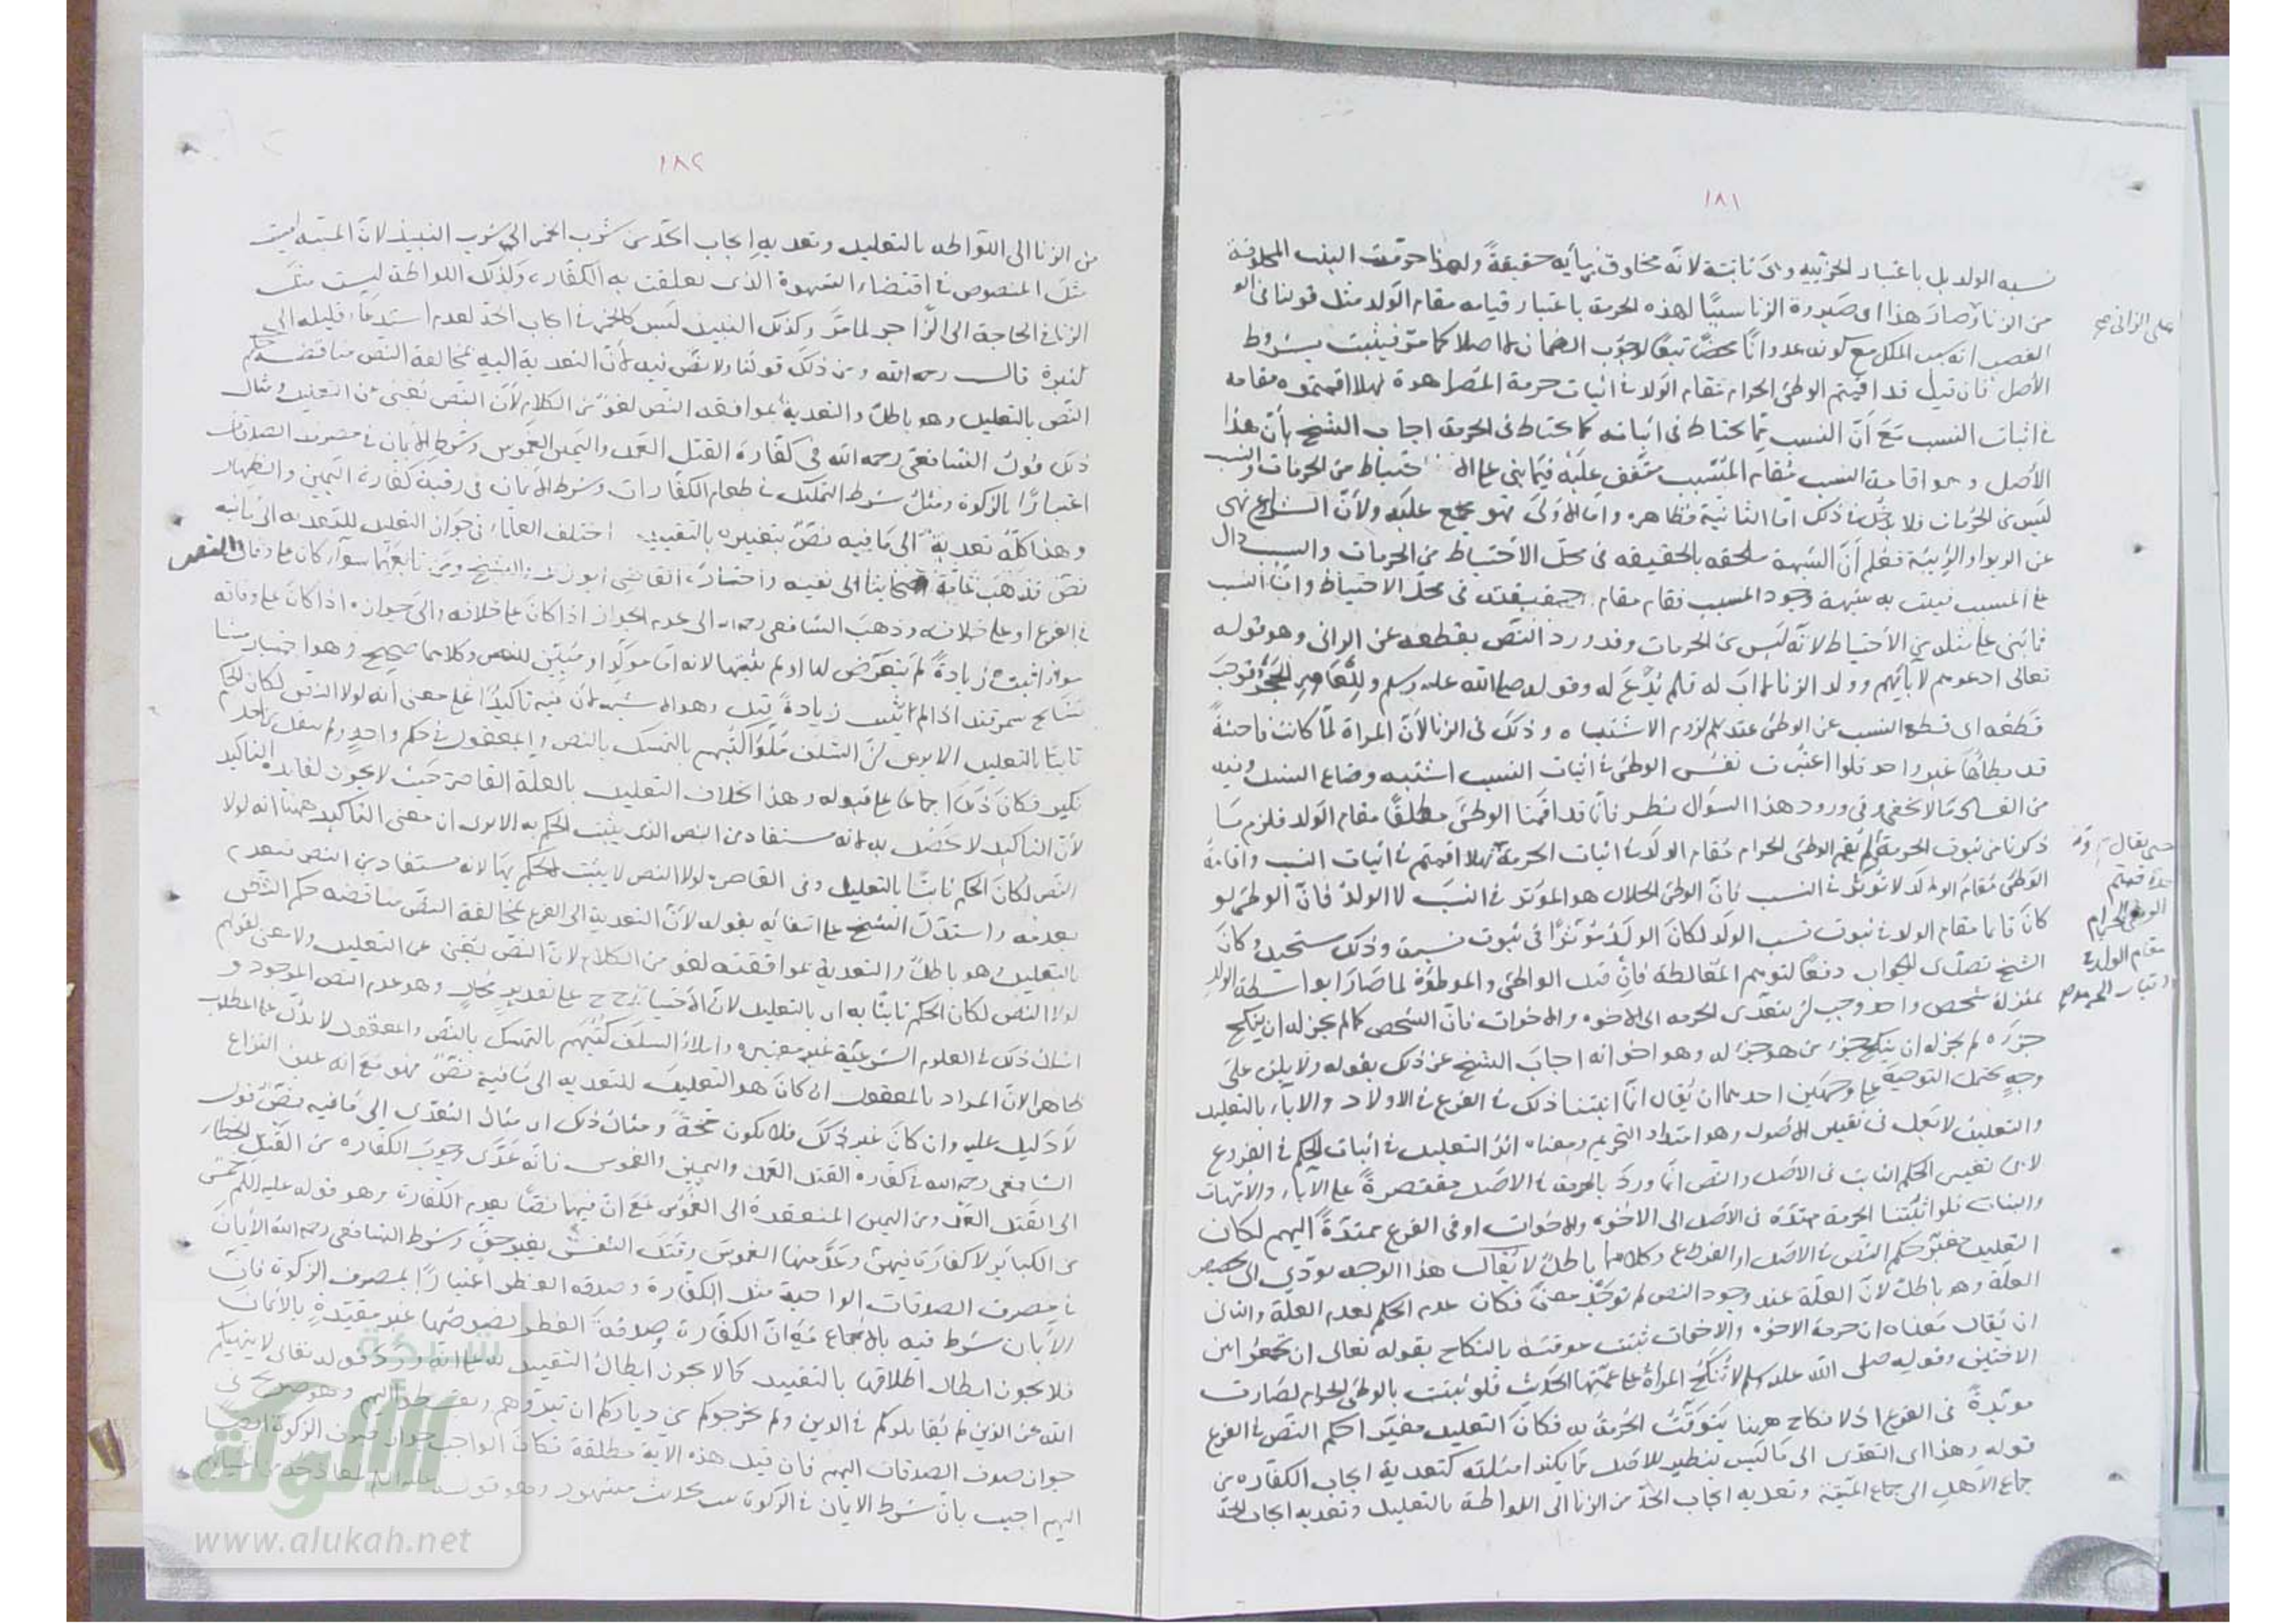 ١٨١
نسبه الولد بل باعتبار الجزئيه وهى ثابتة لانه مخلوق بمايه حقيقةً ولهذا حرمت البنت المخلوقة
من الزنا وصار هذا اى صيرورة الزنا سببًا لهذه الحرمة باعتبار قيامه مقام الولد مثل قولنا فى
على الزانى صح
الغصب انه سبب الملك مع كونه عدوانًا محضًا تبعًا لوجوب الضمان لا اصلا كما مر فيثبت بشروط
الأصل فان قيل قد اقمتم الوطئ الحرام مقام الولد فى اثبات حرمة المصاهرة فهلا اقمتموه مقامه
فى اثبات النسب مع أنّ النسب مما يحتاط فى اثباته كما يحتاط فى الحرمة اجاب الشيخ بأن هذا
الأصل وهو اقامة السبب مقام المسبب متفق عليه فيما بنى على الاحتياط من الحرمات والنسب
ليس من الحرمات فلا يدخل فى ذلك امّا الثانية فظاهرة واما الأولى فهو مجمع عليه ولأنّ الشارع نهى
عن الربوا والريبة فعلم أنّ الشبهة ملحقه بالحقيقه فى محلّ الأحتياط من الحرمات والسبب دال
على المسبب فيثبت به شبهة وجود المسبب فقام مقام حقيقته فى محل الاحتياط وامّا النسب
فما بنى على مثله من الأحتياط لانّه ليس من الحرمات وقد ورد النصّ بقطعه عن الزانى وهو قوله
تعالى ادعوهم لآبائهم وولد الزنا لا اب له فلم يُدْعَ له وقوله صلى الله عليه وسلم وللعاهر الحجر فوجب
قطعه اى قطع النسب عن الوطئ عند لزوم الاشتباه وذلك فى الزنا لأنّ المراة لمّا كانت فاحشةً
قد يطأها غير واحد فلوا اعتبرت نفس الوطئ فى اثبات النسب اشتبه وضاع النسل وفيه
من الفساد ما لا يخفى وفى ورود هذا السؤال نظر فانّا قد اقمنا الوطئ مطلقًا مقام الولد فلزم ما
ذكرنا من ثبوت الحرمة ولم نقم الوطئ الحرام مقام الولد فى اثبات الحرمة فهلا اقمتم فى اثبات النسب واقامة
حتى يقال
الوطئ مقام الولد لا تؤثر فى النسب فانّ الوطئ الحلال هو المؤثر فى النسب لا الولد فانّ الوطئ لو
اقمتم
الوطئ الحرام
كان قايما مقام الولد فى ثبوت نسب الولد لكان الولد مؤثرًا فى ثبوت نسبه وذلك مستحيل وكان
مقام الولد فى
الشيخ تصدّى للجواب دفعًا لتوهم المغالطة فإن قيل الواطئ والموطؤة لما صارا بواسطة الولد
بمنزلة شخص واحد وجب ان يتعدّى الحرمه الى الاخوه والاخوات فانّ الشخص كما لم يجز له ان ينكح
جزءه لم يجز له ان ينكح جزء من هو جزء له وهو اخوانه اجاب الشيخ عن ذلك بقوله ولا يلزم على
وجهٍ يحتمل التوجيه على وجهين احدهما ان يُقال انّا اثبتنا ذلك فى الفرع فى الاولاد والاباء بالتعليل
والتعليل لا يعمل فى تغيير الأصول وهو امتداد التحريم ومعناه اثر التعليل فى اثبات الحكم فى الفروع
لا فى تغيير الحكم الثابت فى الأصل والنص انما ورد بالحرمة فى الاصل مقتصرةً على الآباء والأمّهات
والبنات فلوا اثبتنا الحرمة ممتدّة فى الأصل الى الاخوه والاخوات او فى الفرع ممتدّةً اليهم لكان
التعليل مغيّر حكم النص فى الاصل او الفرع وكلاهما باطلٌ لا يُقال هذا الوجه يؤدّي الى تخصيص
العلّة وهو باطلٌ لأنّ العلّة عند وجود النص لم توجد معنىً فكان عدم الحكم لعدم العلة والثانى
ان يُقال معناه ان حرمة الاخوه والاخوات ثبتت موقتة بالنكاح بقوله تعالى ان تجمعوا بين
الاختين وقوله صلى الله عليه وسلم لا تُنكح المراة على عمّتها الحديث فلو ثبتت بالوطئ الحرام لصارت
مؤبّدةً فى الفرع اذ لا نكاح ههنا يتوقّت الحُرمةُ به فكان التعليل مغيرا حكم النصّ فى الفرع
قوله وهذا اى التعدّى الى ما ليس بنظير للأصل مما يكثر امثلته كتعدية ايجاب الكفّاره من
جماع الأهلِ الى جماع الميّتة وتعديه ايجاب الحدّ من الزنا الى اللواطة بالتعليل وتعديه ايجاب الحدّ
١٨٢
من الزنا الى اللّواطه بالتعليل وتعديه إيجاب الحدّ من شُرب الخمر الى شرب النبيذ لانّ الميتة ليست
مثل المنصوص فى اقتضاء الشهوة الذى تعلقت به الكفّارة وكذلك اللواطة ليست مثل
الزنا فى الحاجة الى الزّاجر لما مرّ وكذلك النبيذ ليس كالخمر فى ايجاب الحدّ لعدم استدعاء قليله الى
كثيره قال رحمه الله ومن ذلك قولنا ولا نصّ فيه لأنّ التعدية اليه بمخالفة النّص مناقضة حكم
النّص بالتعليل وهو باطلٌ والتعدية بموافقة النّص لغوٌ من الكلام لأنّ النّص يُغنى عن التعليل ومثال
ذلك قول الشافعى رحمه الله فى كفّارة القتل العمد واليمين الغموس وشرط الايمان فى مصرف الصدقات
اعتبارًا بالزكوة ومثل شرط التمليك فى طعام الكفّارات وشرط الايمان فى رقبة كفّارة اليمين والظهار
وهذا كلّه تعديةٌ الى ما فيه نصٌّ بتغييره بالتقييد اختلف العلماء فى جواز التعليل للتعديه الى ما فيه
نصّ فذهب عامّة اصحابنا الى نفيه واختاره القاضى ابو زيد والشيخ ومن تابعهما سواء كان على وفاق النص
فى الفرع او على خلافه وذهب الشافعى رحمه الله الى عدم الجواز اذا كان على خلافه والى جوازه اذا كان على وفاقه
سواء اثبت زيادةً لم يتعرّض لها او لم يثبتها لانه امّا مؤكّد او مُبيّن للنص وكلاهما صحيح وهو اختيار مشايخنا
مشايخ سمرقند اذا لم يثبت زيادةً قيل وهو الاشبه لأن فيه تأكيدًا على معنى أنه لولا النص لكان الحكم
ثابتا بالتعليل الا يرى انّ السلف مَلَؤا كُتُبهم بالتمسك بالنص والمعقول فى حكم واحدٍ ولم ينقل عن احد
نكير فكان ذلك اجماعا على قبوله وهذا بخلاف التعليل بالعلة القاصرة حيث لا يجوز لفائدة التاكيد
لأنّ التأكيد لا يحصُل به لانه مستفاد من النص الذى يثبت الحكم به الا يرى ان معنى التأكيد ههنا انه لولا
النّص لكان الحكم ثابتًا بالتعليل وفى القاصرة لولا النص لا يثبت الحكم بها لانه مستفاد من النص فينعدم
بعدمه واستدلّ الشيخ على انتفائه بقوله لأنّ التعدية الى الفرع بمخالفة النّصّ مناقضة حكم النّصّ
بالتعليل وهو باطلٌ والتعدية بموافقته لغو من الكلام لانّ النّصّ يُغنى عن التعليل ولا معنى لقولهم
لولا النّص لكان الحكم ثابتًا به اى بالتعليل لأنّ الأحتياج ح على تقديرٍ مُحالٍ وهو عدم النص الموجود و
امثال ذلك فى العلوم الشرعيّة غير معتبرة واملاءُ السلَف كُتُبَهُم بالتمسك بالنصّ والمعقول لا يدلّ على المطلوب
ظاهرا لانّ المراد بالمعقول ان كان هو التعليل للتعديه الى ما فيه نصٌّ فهو مع انه عين النزاع
لا دليل عليه وان كان غير ذلك فلا يكون حجّةً ومثال ذلك اى مثال التعدّى الى ما فيه نصٌّ قول
الشافعى رحمه الله فى كفّاره القتل العمد واليمين الغموس فانّه عَدَّى وجوب الكفّاره من القتل الخطاء
الى القتل العمد ومن اليمين المنعقدة الى الغموس مع انّ فيهما نصًّا بعدم الكفّارة وهو قوله عليه السلم خمس
من الكبائر لا كفارة فيهنّ وعدّ منها الغموس وقتل النفس بغير حقّ وشرط الشافعى رحمه الله الأيمان
فى مصرف الصدقات الواجبة مثل الكفّارة وصدقه الفطر اعتبارًا بمصرف الزكوة فانّ
الايمان شرط فيه بالاجماع مع انّ الكفّارة وصدقة الفطر نصوصهما غير مقيّدةٍ بالأيمان
فلا يجوز ابطال اطلاقها بالتقييد كما لا يجوز ابطال التقييد قوله تعالى لا ينهيكم
الله عن الذين لم يُقاتلوكم فى الدين ولم يخرجوكم من دياركم ان تبرّوهم وتقسطوا اليهم وهو صريح فى
جواز صرف الصدقات اليهم فان قيل هذه الاية مطلقة فكان الواجب جواز صرف الزكوة ايضًا
اليهم اجيب بانّ شرط الايمان فى الزكوة ثبت بحديث مشهور وهو قوله
شبكة
الألوكة
www.alukah.net